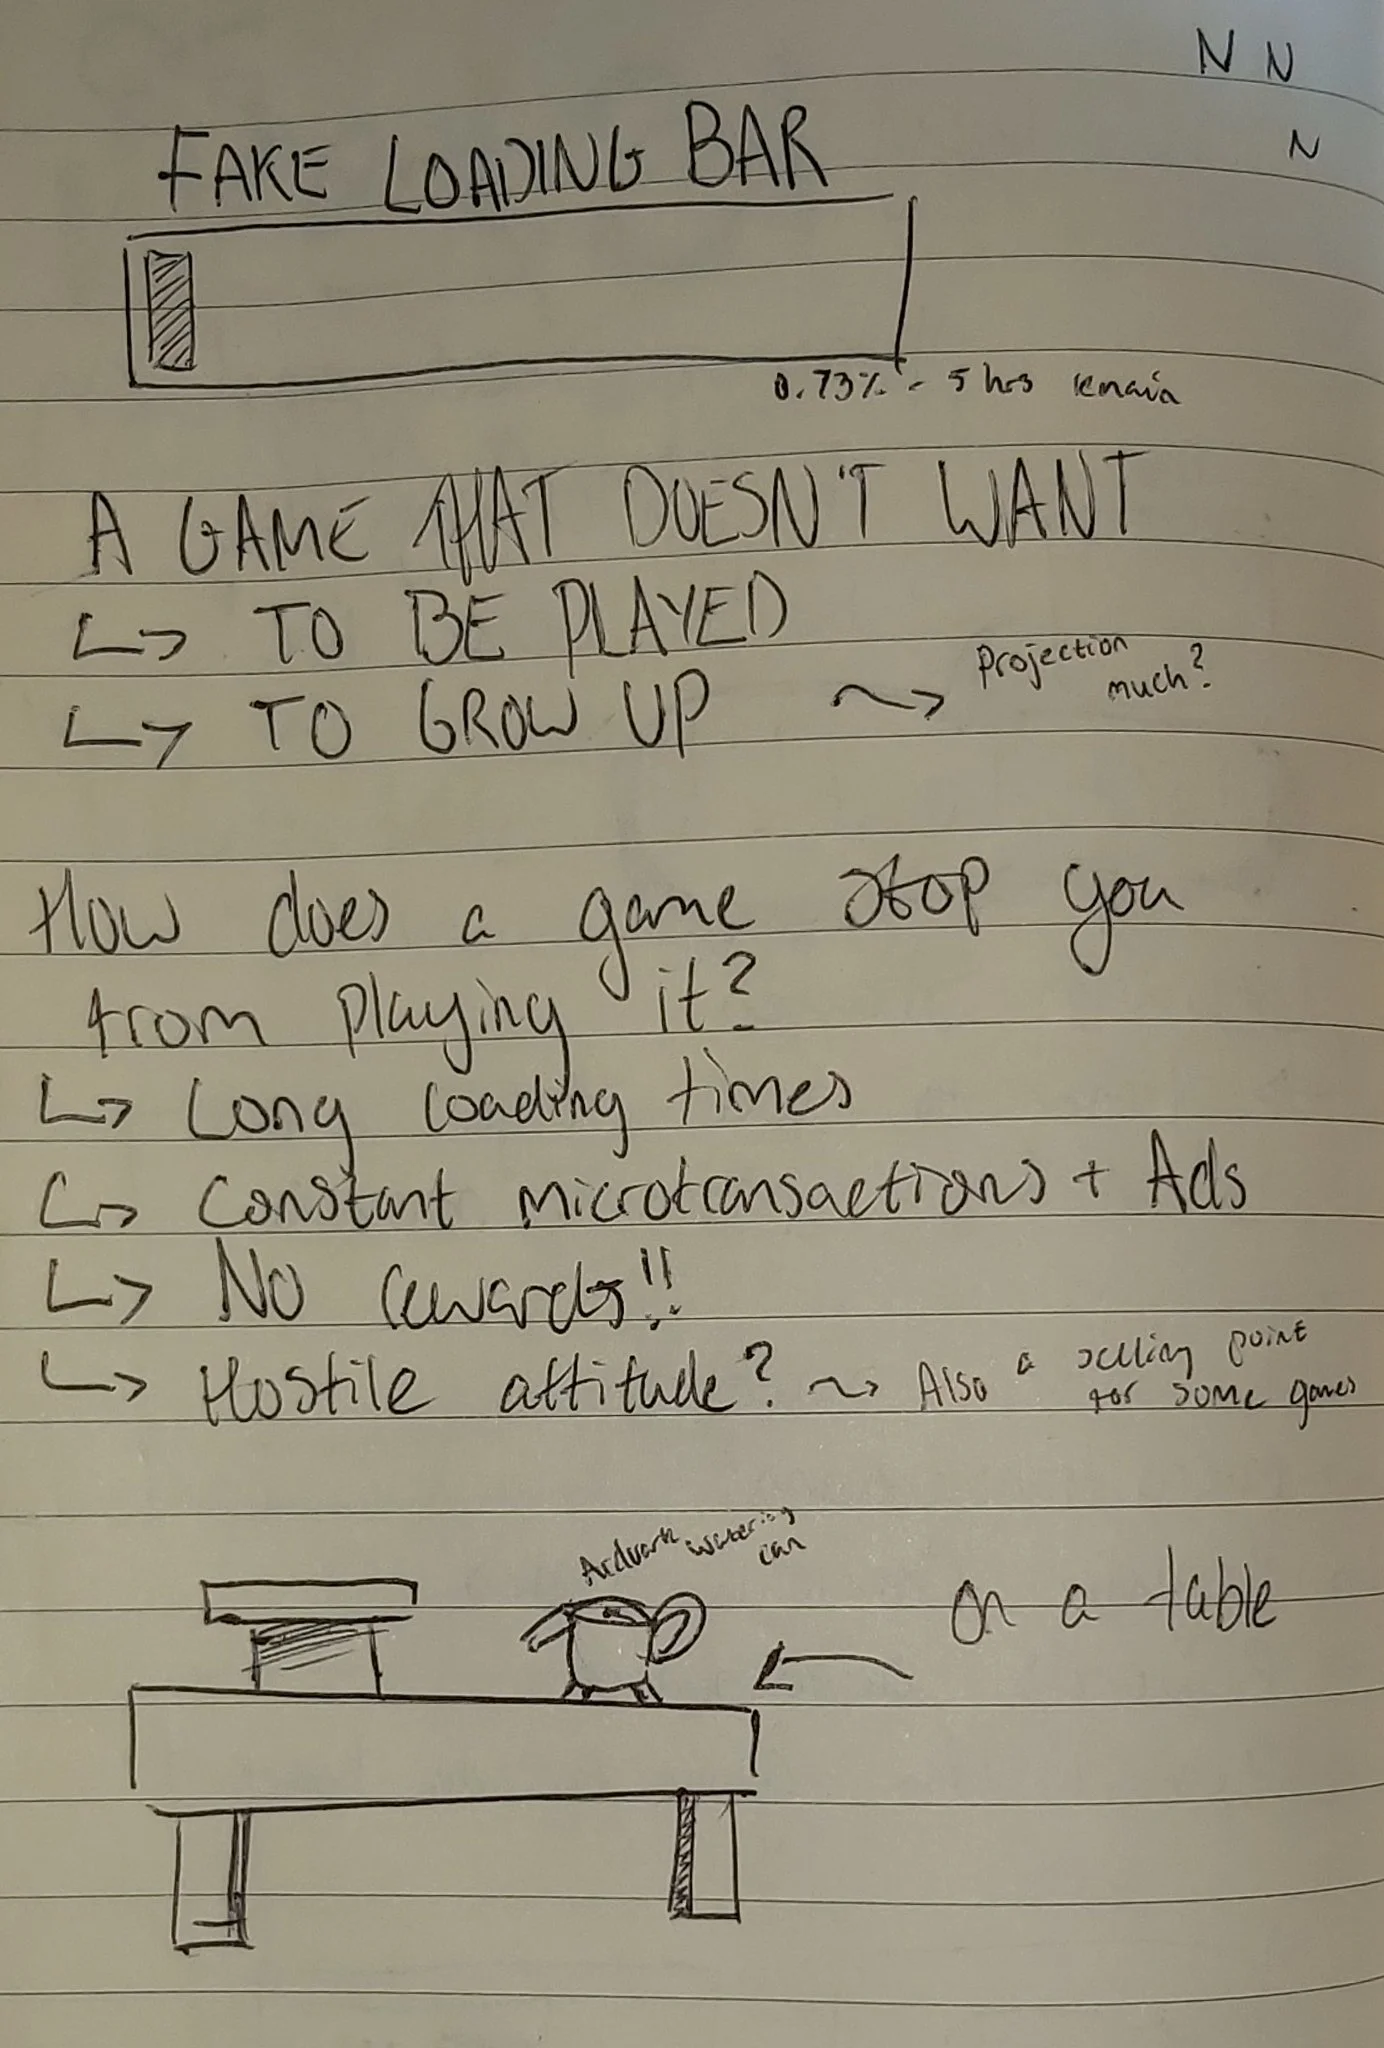 N N
N
FAKE LOADING BAR
0.73% - 5 hrs remain
A GAME THAT DOESN'T WANT
↳ TO BE PLAYED
↳ TO GROW UP ~> Projection
much?
How does a game stop you
from playing it?
↳ Long loading times
↳ Constant microtransactions + Ads
↳ NO rewards!!
↳ Hostile attitude? ~> Also a selling point
for some games
Arduark watering
can
on a table